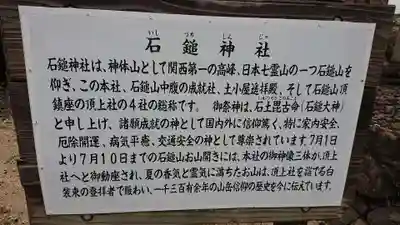 いし づち じん じゃ
石鎚神社
石鎚神社は、神体山として関西第一の高峰、日本七霊山の一つ石鎚山を
仰ぎ、この本社、石鎚山中腹の成就社、土小屋遥拝殿、そして石鎚山頂
鎮座の頂上社の4社の総称です。 御祭神は、石土毘古命(石鎚大神)
と申し上げ、諸願成就の神として国内外に信仰篤く、特に家内安全、
厄除開運、病気平癒、交通安全の神として尊崇されています。7月1日
より7月10日までの石鎚山お山開きには、本社の御神像三体が頂上
社へと御動座され、夏の香気と霊気に満ちたお山は、頂上社を詣で名白
装束の登拝者で賑わい、一千三百有余年の山岳信仰の歴史を今に伝えています。